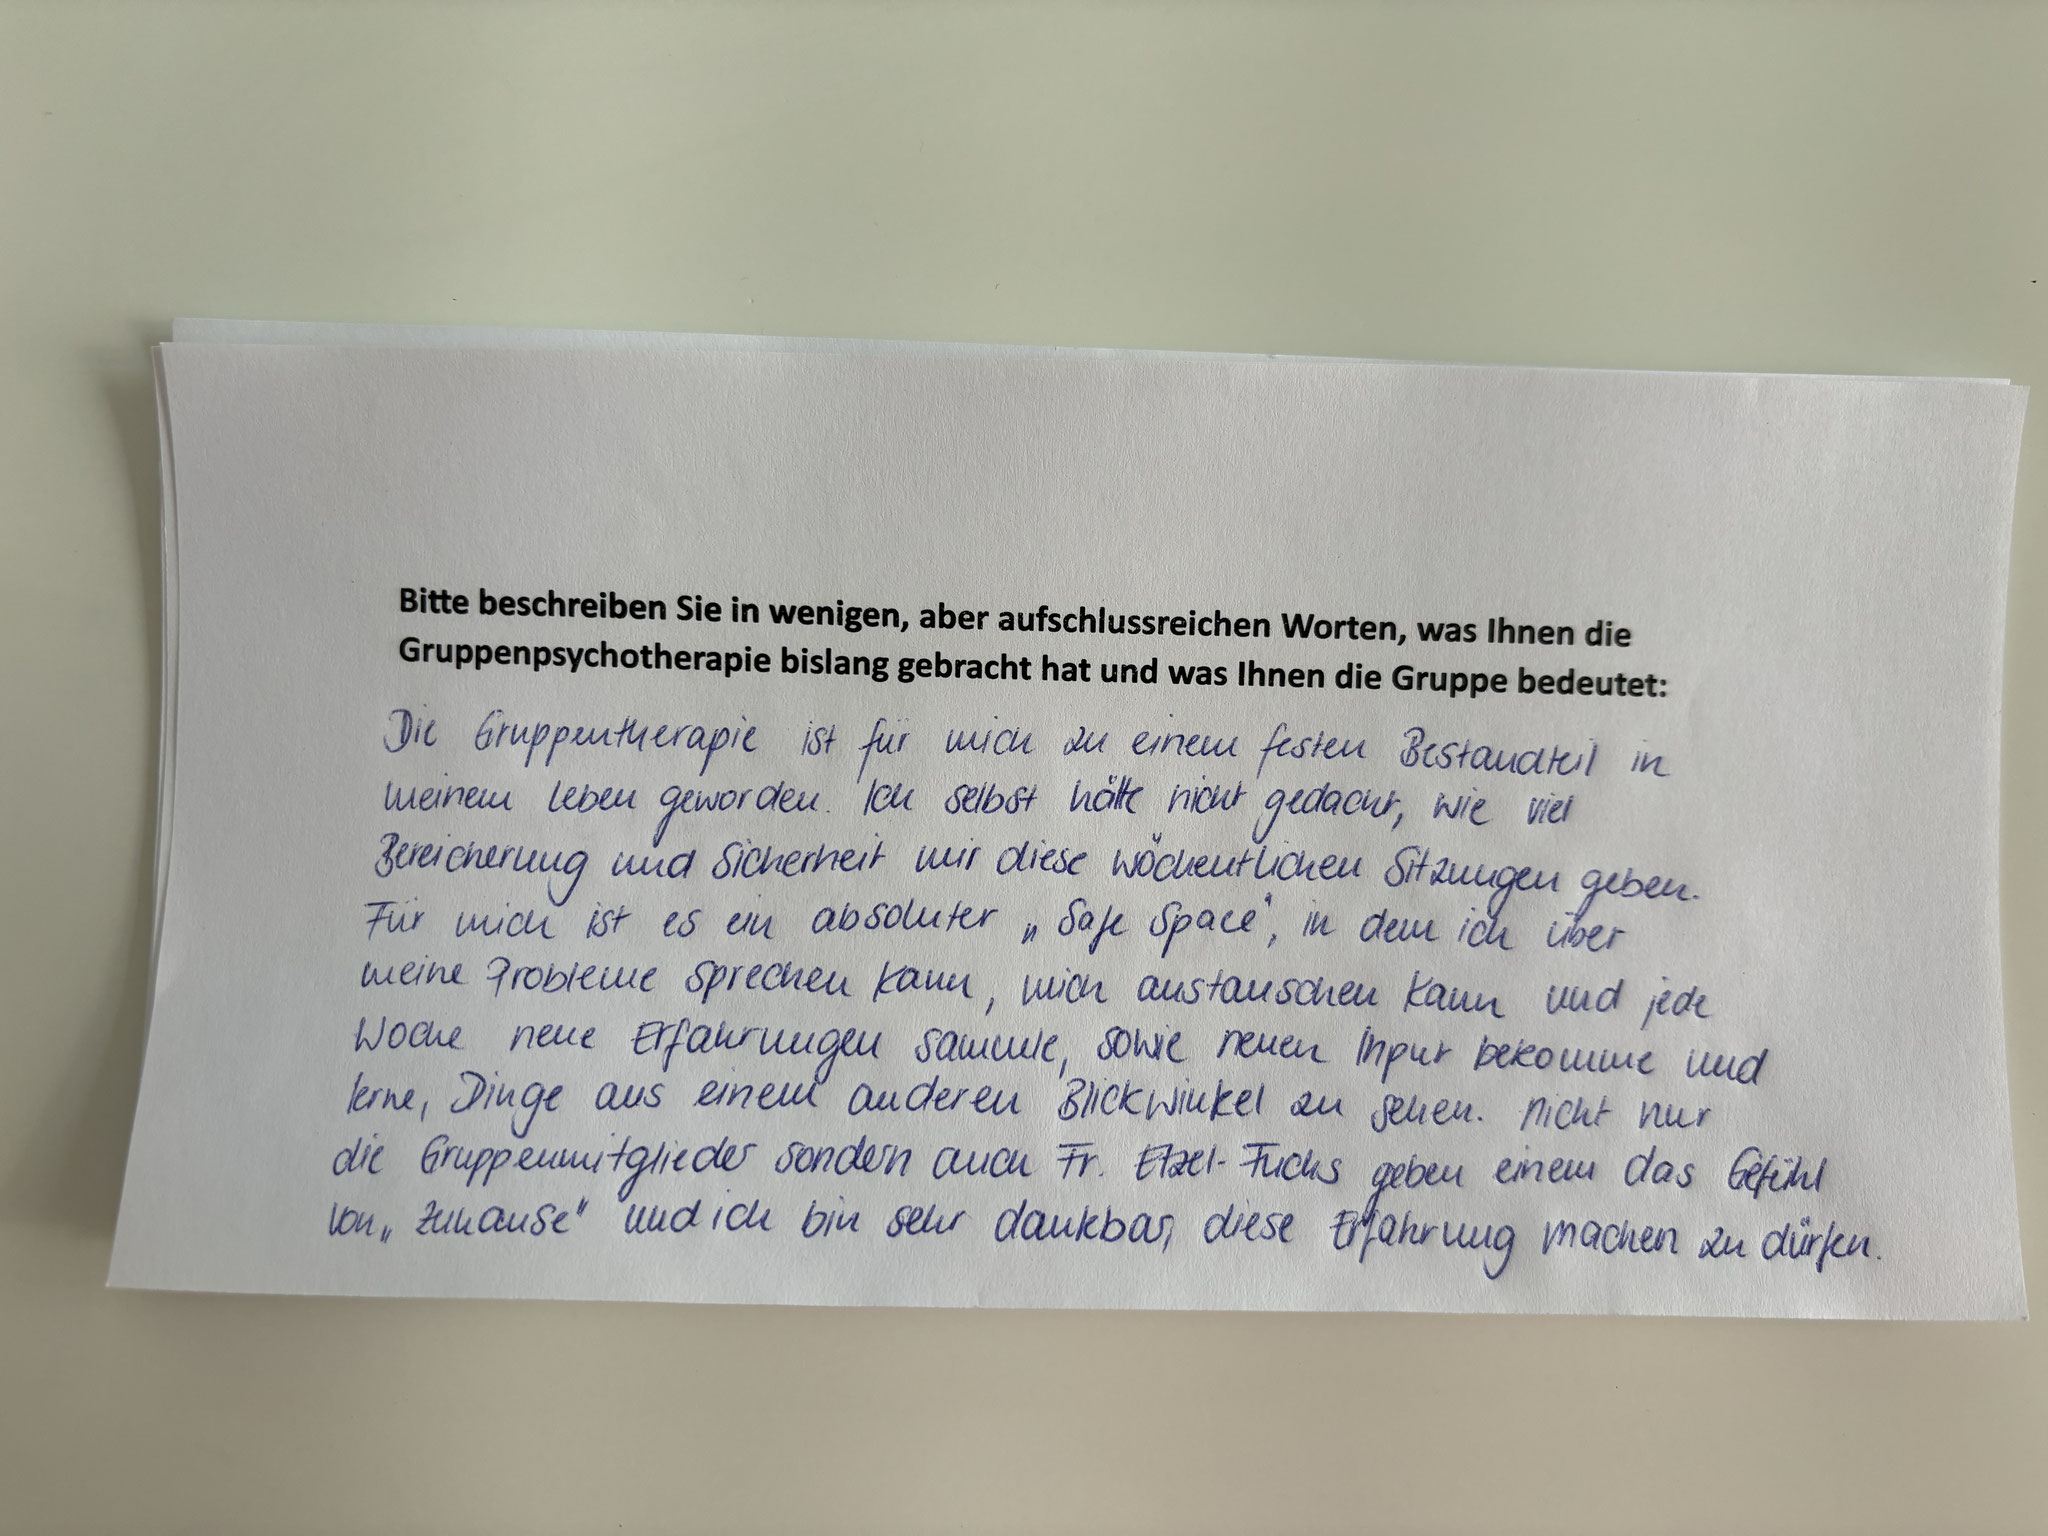 Bitte beschreiben Sie in wenigen, aber aufschlussreichen Worten, was Ihnen die
Gruppenpsychotherapie bislang gebracht hat und was Ihnen die Gruppe bedeutet:
Die Gruppentherapie ist für mich zu einem festen Bestandteil in
meinem Leben geworden. Ich selbst hätte nicht gedacht, wie viel
Bereicherung und Sicherheit mir diese wöchentlichen Sitzungen geben.
Für mich ist es ein absoluter „Safe Space“, in dem ich über
meine Probleme sprechen kann, mich austauschen kann und jede
Woche neue Erfahrungen sammle, sowie neuen Input bekomme und
lerne, Dinge aus einem anderen Blickwinkel zu sehen. Nicht nur
die Gruppenmitglieder sondern auch Fr. Etzel-Fuchs geben einem das Gefühl
von „Zuhause“ und ich bin sehr dankbar, diese Erfahrung machen zu dürfen.